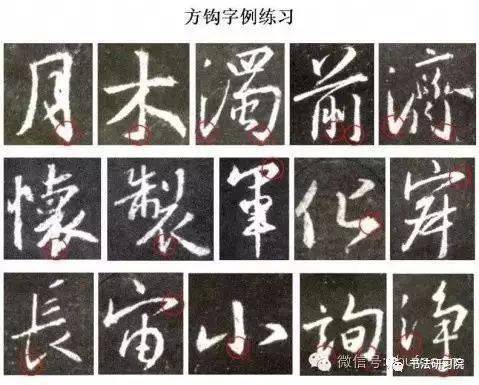 方钩字例练习
月 木 濁 前 濟
懷 製 軍 化
長 宙 小 詢 淨
微信号:
书法研究院